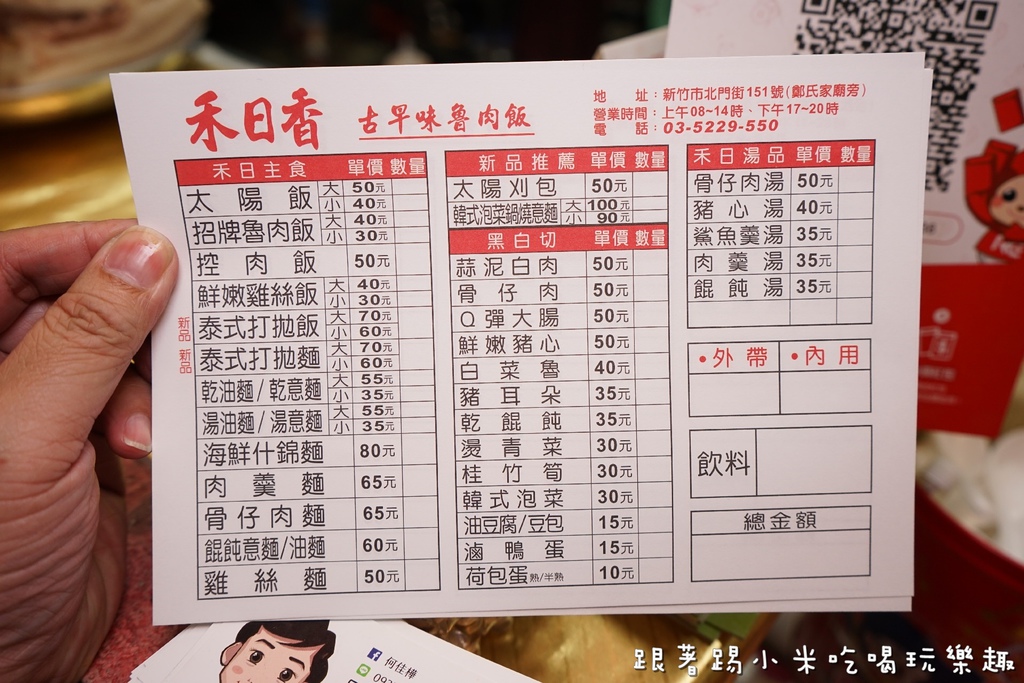 禾日香 古早味魯肉飯
地 址：新竹市北門街151號(鄭氏家廟旁)
營業時間：上午08~14時、下午17~20時
電 話：03-5229-550
禾日主食 單價 數量
太陽飯 大 50元
小 40元
招牌魯肉飯 大 40元
小 30元
控肉飯 50元
鮮嫩雞絲飯 大 40元
小 30元
新品 泰式打拋飯 大 70元
小 60元
新品 泰式打拋麵 大 70元
小 60元
乾油麵/乾意麵 大 55元
小 35元
湯油麵/湯意麵 大 55元
小 35元
海鮮什錦麵 80元
肉羹麵 65元
骨仔肉麵 65元
餛飩意麵/油麵 60元
雞絲麵 50元
新品推薦 單價 數量
太陽刈包 50元
韓式泡菜鍋燒意麵 大 100元
小 90元
黑白切 單價 數量
蒜泥白肉 50元
骨仔肉 50元
Q彈大腸 50元
鮮嫩豬心 50元
白菜魯 40元
豬耳朵 35元
乾餛飩 35元
燙青菜 30元
桂竹筍 30元
韓式泡菜 30元
油豆腐/豆包 15元
滷鴨蛋 15元
荷包蛋熟/半熟 10元
禾日湯品 單價 數量
骨仔肉湯 50元
豬心湯 40元
鯊魚羹湯 35元
肉羹湯 35元
餛飩湯 35元
•外帶 •內用
飲料
總金額
何佳樺
跟著踢小米吃喝玩樂趣